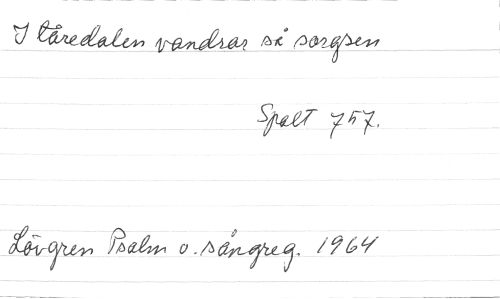 I tåredalen vandrar så sorgsen
Spalt 757.
Lövgren Psalm o. sångreg. 1964